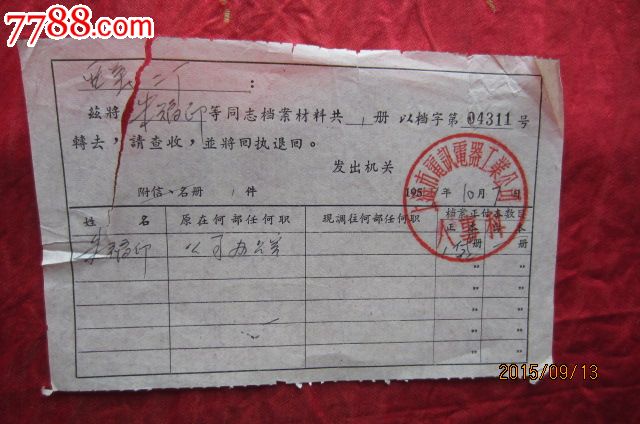 7788.com
：
茲將朱福卯等同志档案材料共1册以档字第04311号
轉去，請查收，並將回执退回。
发出机关
上海市電訊電器工業公司
人事科
195 年10月 日
附信、名册1件
姓名 原在何部任何职 現調往何部任何职 档案正付本数目
正本 付本
朱福卯 公司办公室 1册 册
〃 〃
〃 〃
〃 〃
〃 〃
〃 〃
2015/09/13